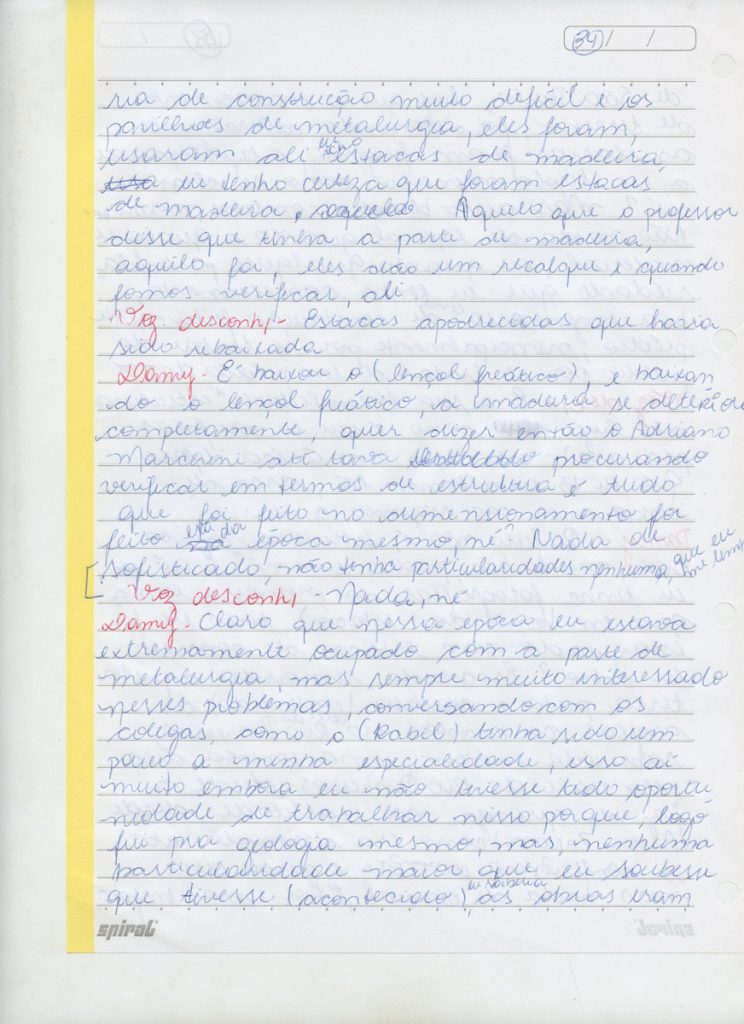 34 / /
ria de construção muito difícil e os
pavilhões de metalurgia, eles foram,
usaram ali estacas de madeira,
eu tenho certeza que foram estacas
de madeira, Aquilo que o professor
disse que tinha a parte de madeira,
aquilo foi, eles dão um recalque e quando
fomos verificar, ali
Voz desconhi - Estacas apodrecidas que havia
sido rebaixada
Damy - É baixou o (lençol freático), e baixan
do o lençol freático, a madeira se deteriora
completamente, quer dizer então o Adriano
Marchini até tava procurando
verificar em termos de estrutura é tudo
que foi feito no dimensionamento foi
feito da época mesmo, né. Nada de
sofisticado, não tinha particularidades nenhuma, que eu
Voz desconhi - Nada, né
Damy - Claro que nessa época eu estava
extremamente ocupado com a parte de
metalurgia, mas sempre muito interessado
nesses problemas, conversando com os
colegas, como o (Rabil) tinha sido um
pouco a minha especialidade, isso aí
muito embora eu não tivesse tido oportu
nidade de trabalhar nisso porque, logo
fui pra geologia mesmo, mas, nenhuma
particularidade maior que eu soubesse
que tivesse (acontecido) eu saberia, as obras eram
spiral